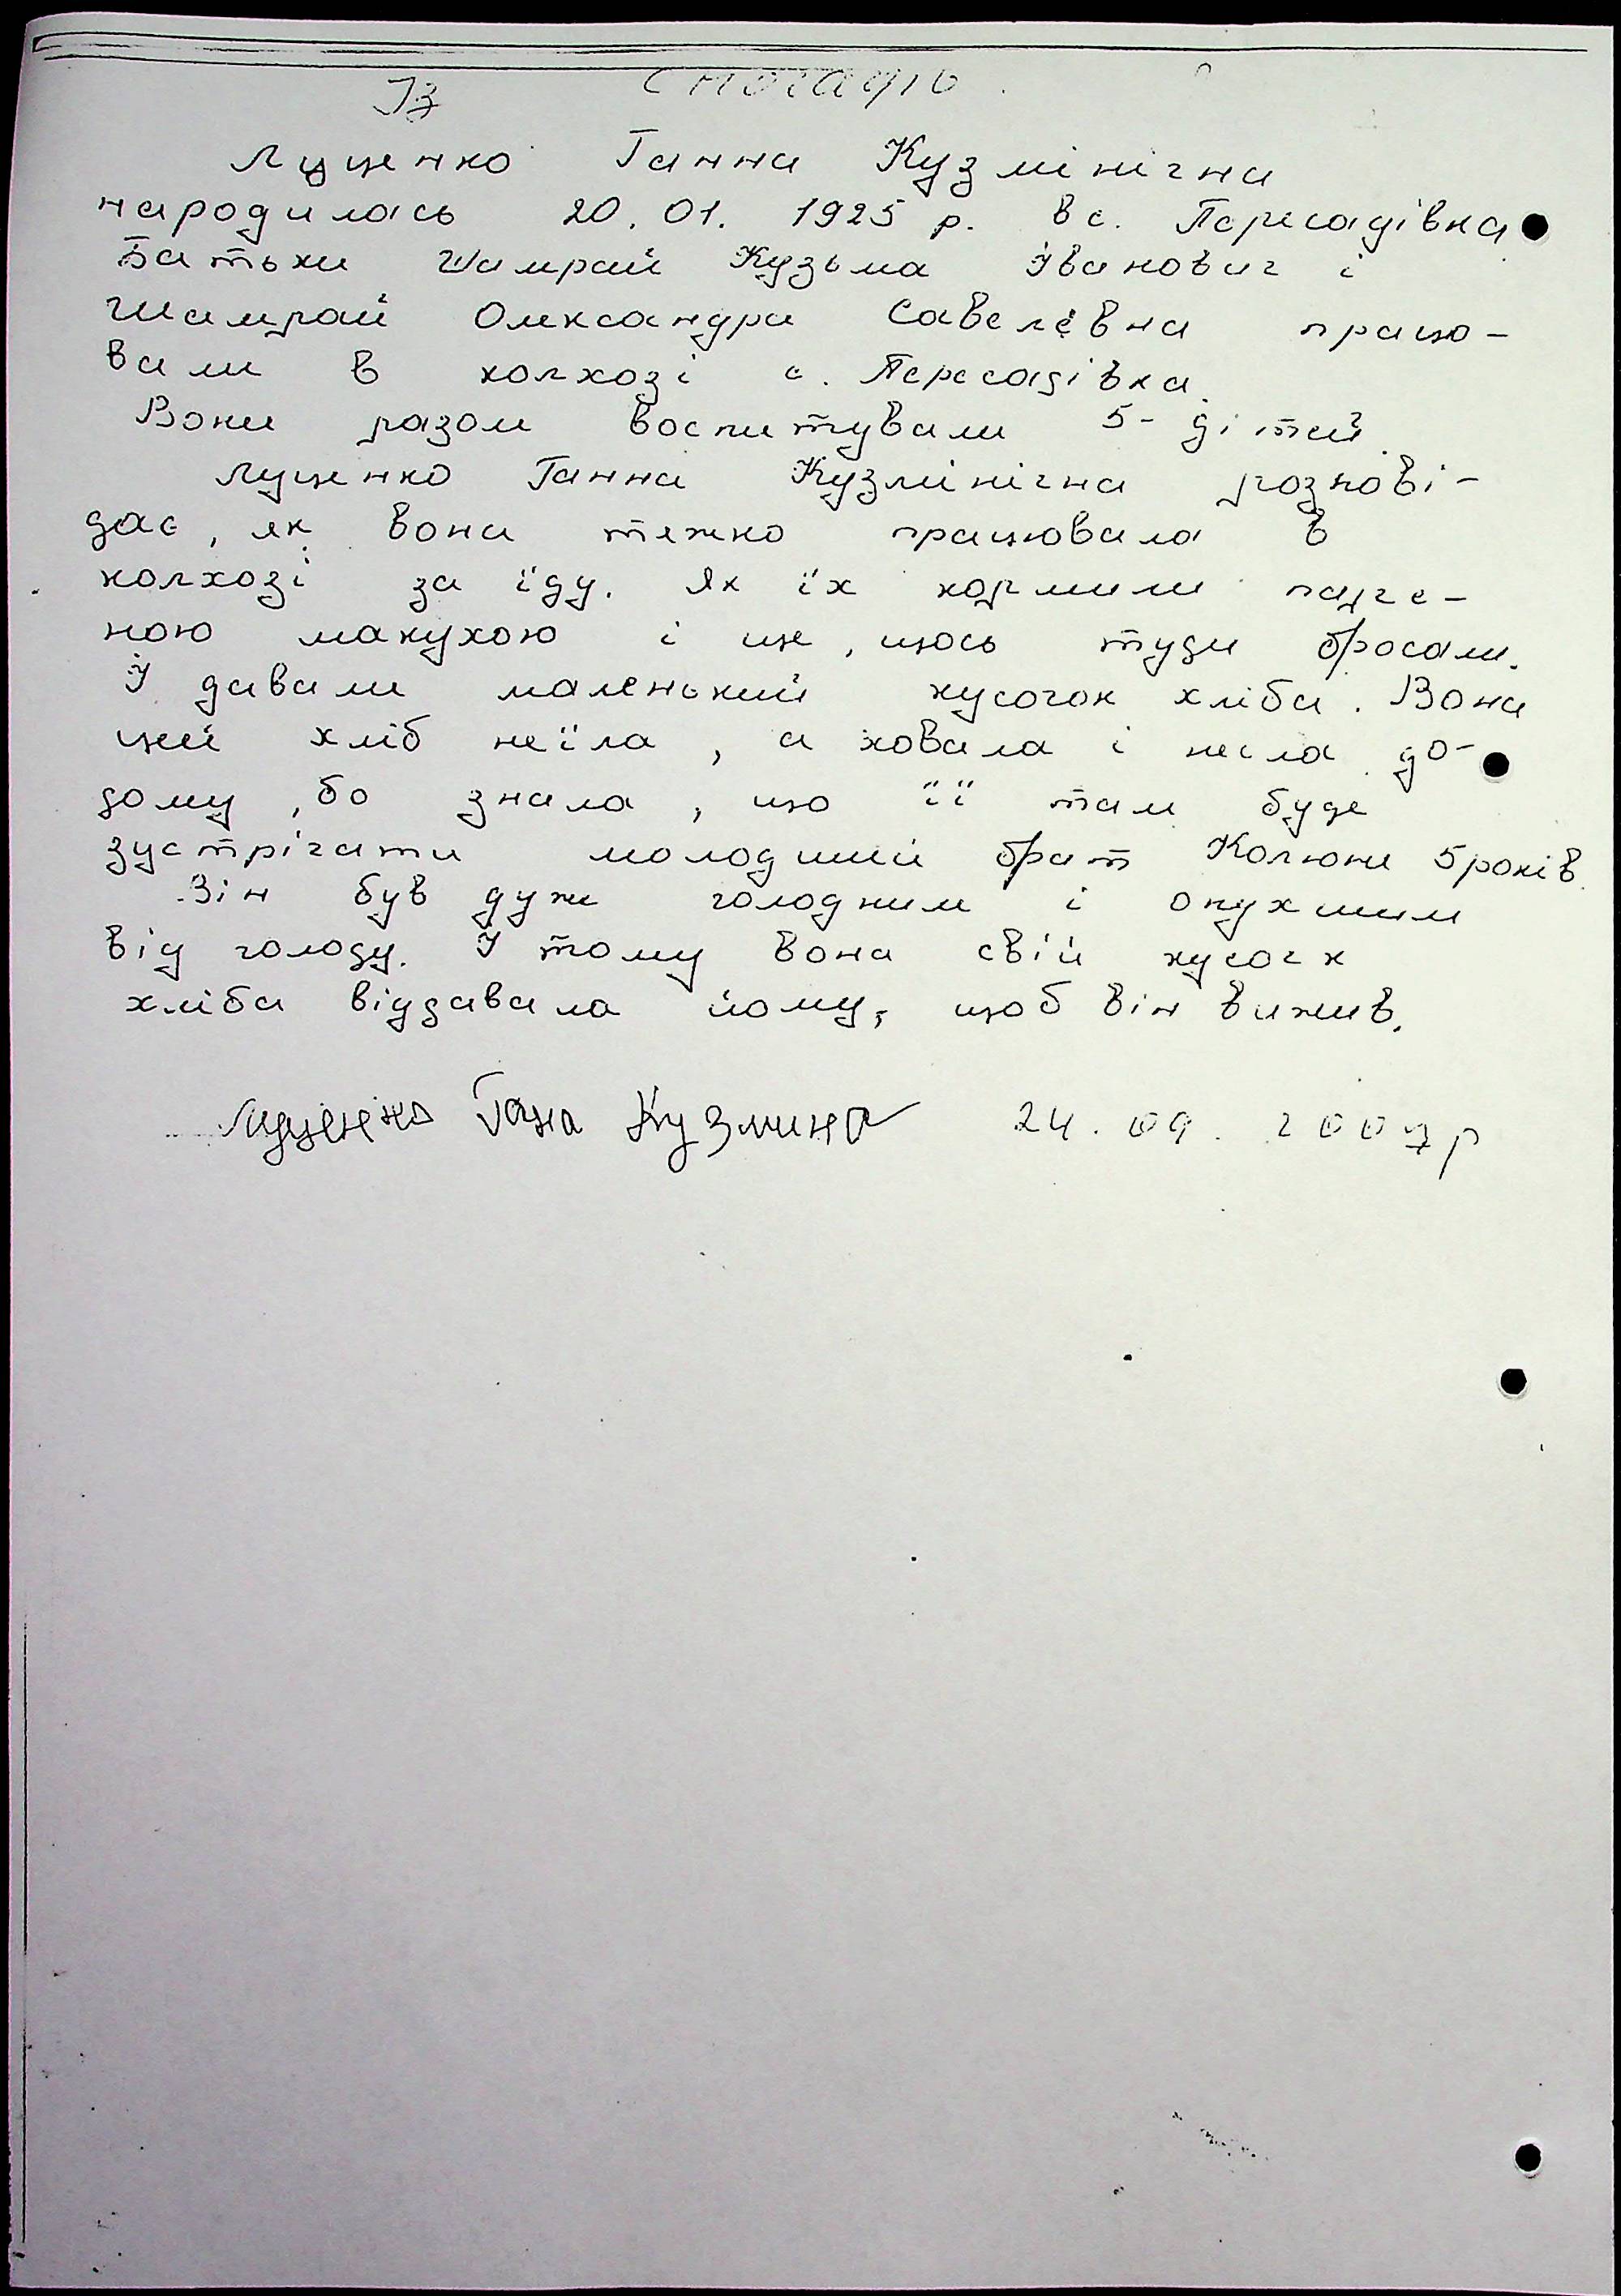 Із спогадів.
Луценко Ганна Кузмінічна
народилась 20.01.1925 р. в с. Пересадівка
Батьки Шамрай Кузьма Іванович і
Шамрай Олександра Савелєвна працю-
вали в колхозі с. Пересадівка.
Вони разом воспитували 5-дітей.
Луценко Ганна Кузмінічна розпові-
дає, як вона тяжко працювала в
колхозі за їду. Як їх кормили паре-
ною макухою і ще, щось туди бросали.
І давали маленький кусочок хліба. Вона
цей хліб неїла, а ховала і несла до-
дому, бо знала, що її там буде
зустрічати молодший брат Колюня 5 років.
Він був дуже голодним і опухшим
від голоду. І тому вона свій кусочк
хліба віддавала йому, щоб він вижив.
Луценко Гана Кузмина 24.09.2007р